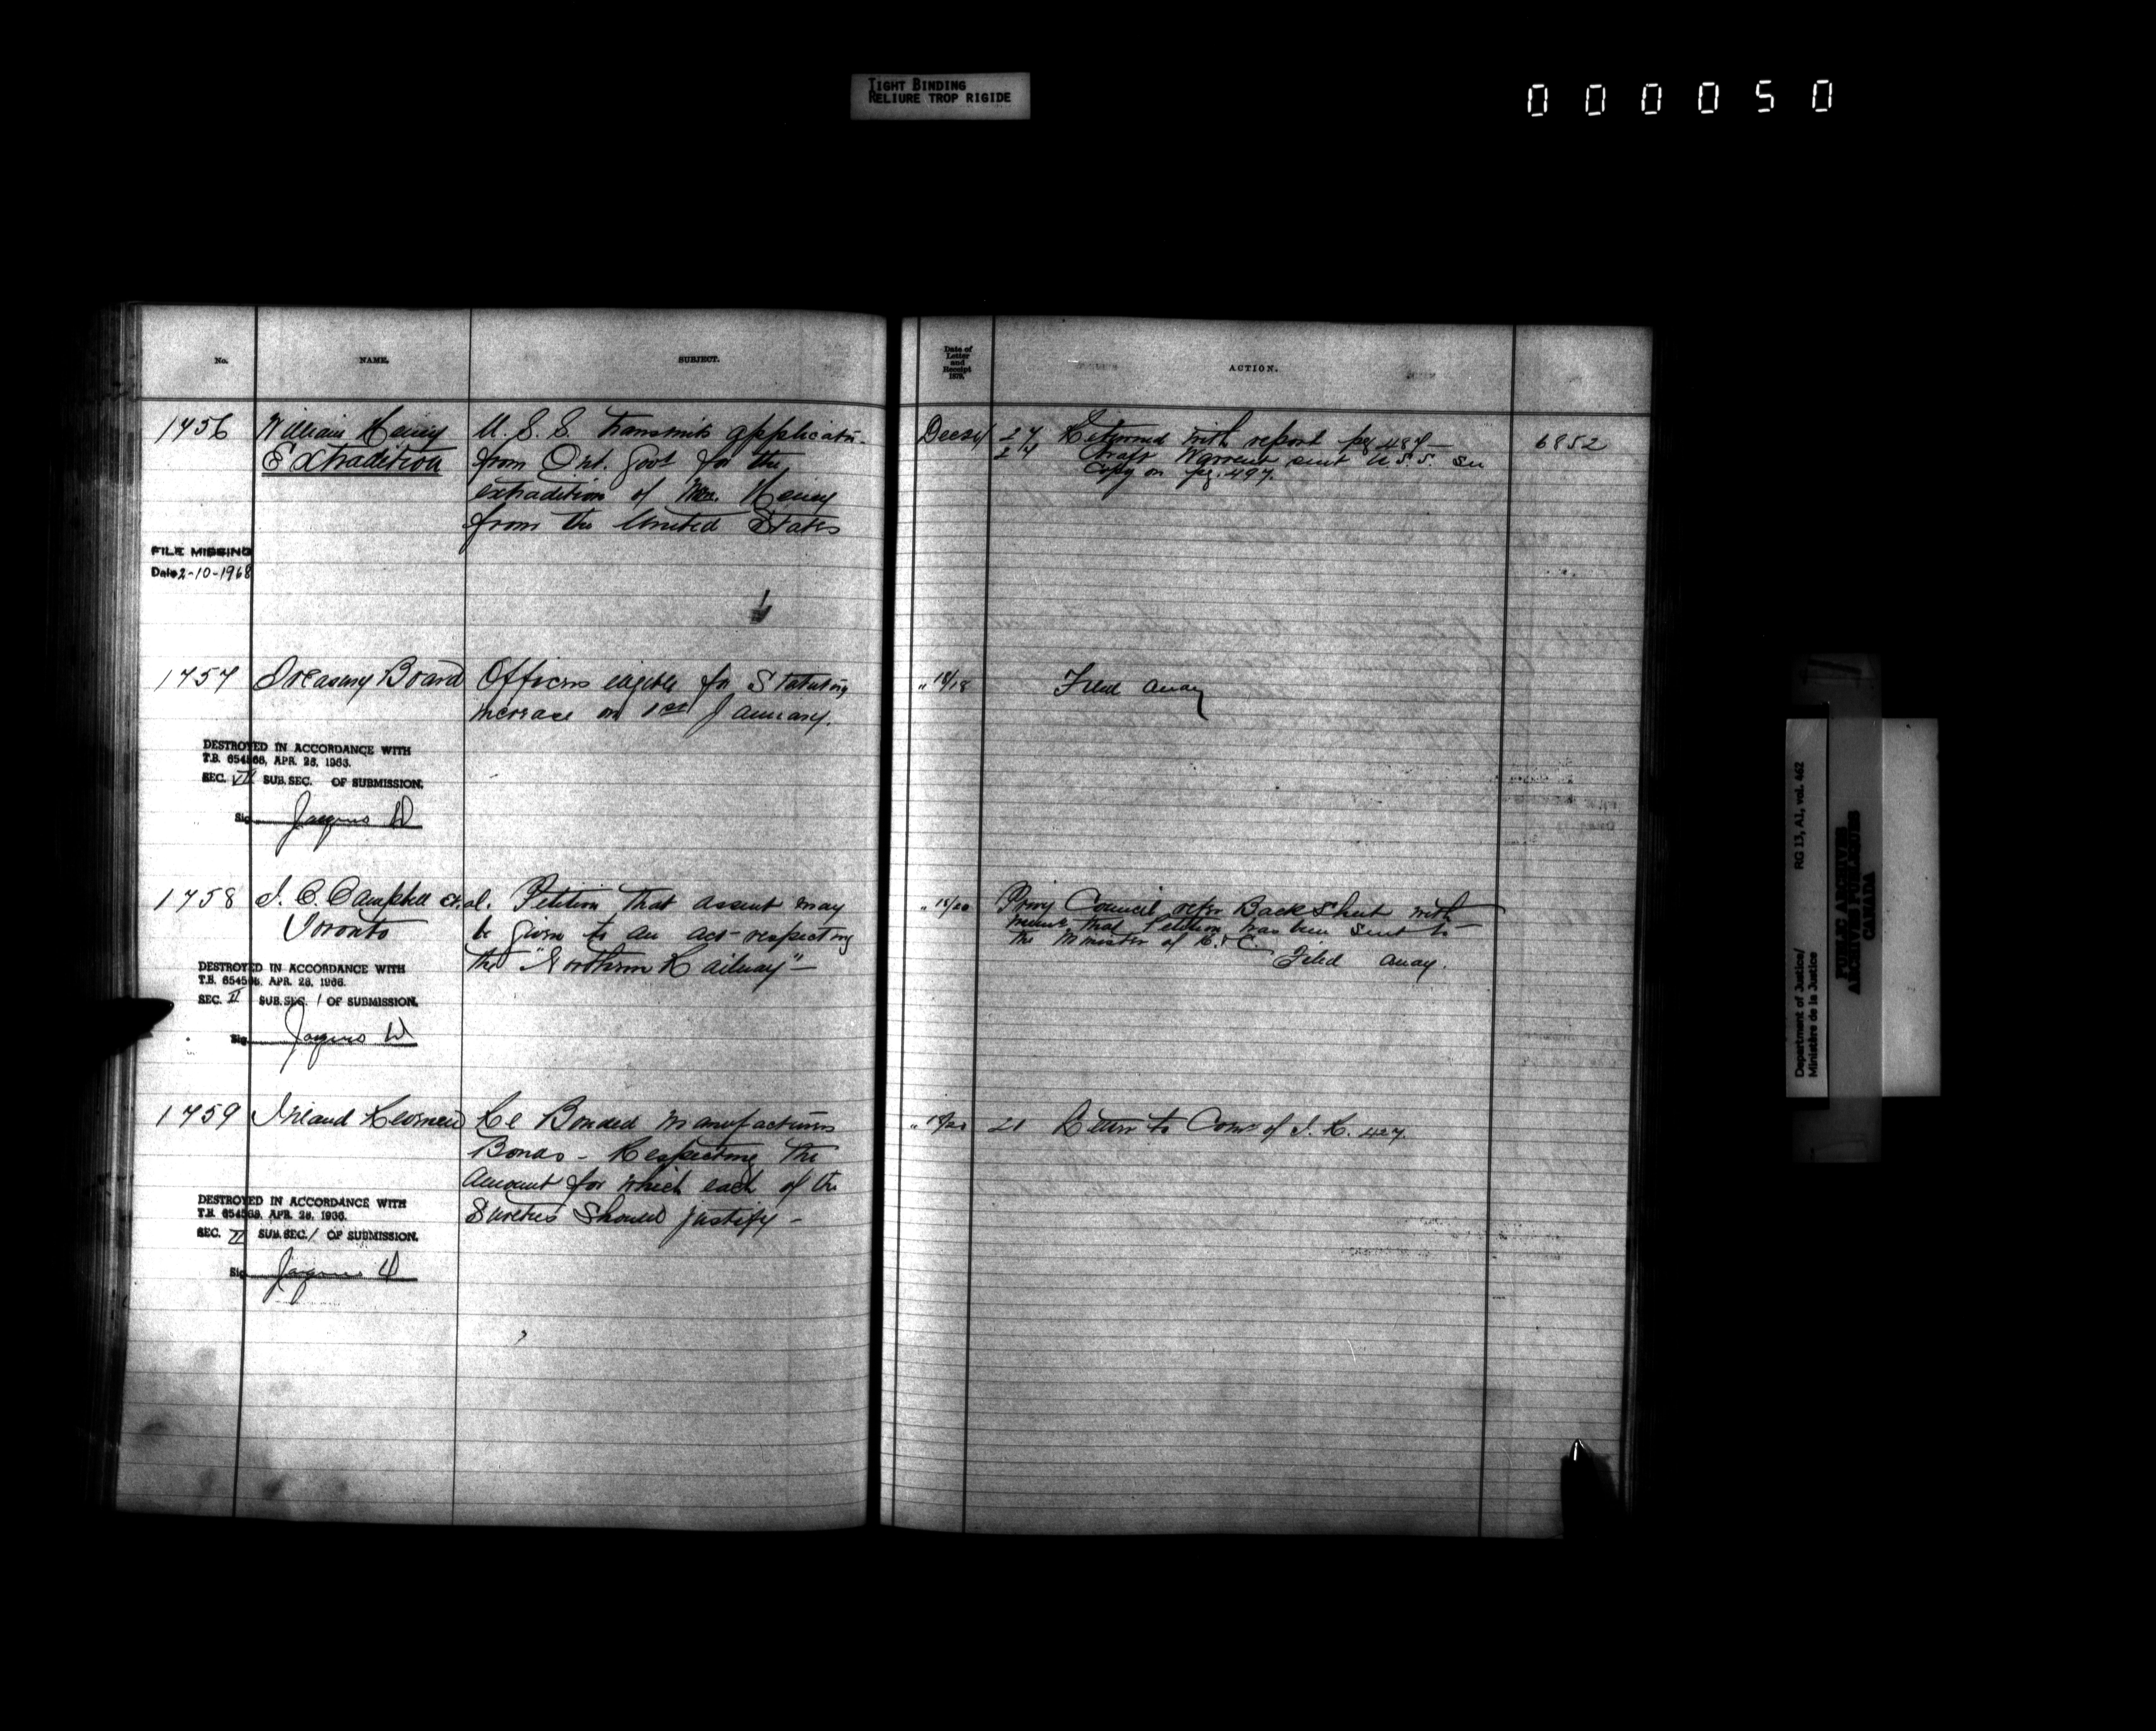 TIGHT BINDING
RELIURE TROP RIGIDE
000050
No. NAME. SUBJECT.
1756 William Henry U.S.S. transmits applicatn.
Extradition from Ont. Govt for the
extradition of Wm. Henry
from the United States
FILE MISSING
Date 2-10-1968
1757 Treasury Board Officers eligible for Statutory
increase on 1st January.
DESTROYED IN ACCORDANCE WITH
T.B. 654566, APR. 28, 1966.
SEC. VII SUB.SEC. OF SUBMISSION.
Sig
1758 J. C. Campbell et al. Petition that assent may
Toronto be given to an act respecting
the "Northern Railway" —
DESTROYED IN ACCORDANCE WITH
T.B. 654566, APR. 28, 1966.
SEC. II SUB.SEC. 1 OF SUBMISSION.
Sig
1759 Inland Revenue Re Bonded Manufacturers
Bonds - Respecting the
amount for which each of the
Sureties should justify -
DESTROYED IN ACCORDANCE WITH
T.B. 654566, APR. 28, 1966.
SEC. II SUB.SEC. 1 OF SUBMISSION.
Sig
Date of
Letter
and
Receipt
1879.
ACTION.
27 Returned with report pg 487 — 6852
24 Draft Warrant sent U.S.S. See
Copy on pg. 497.
" 18/18 Filed away
" 18/20 Privy Council refer Back Sheet with
memo. that Petition has been sent to
the Minister of R. & C.
Filed away.
21 Letter to Comr of I. R. 427.
RG 13, A1, vol. 462
Department of Justice/
Ministère de la Justice
PUBLIC ARCHIVES
ARCHIVES PUBLIQUES
CANADA